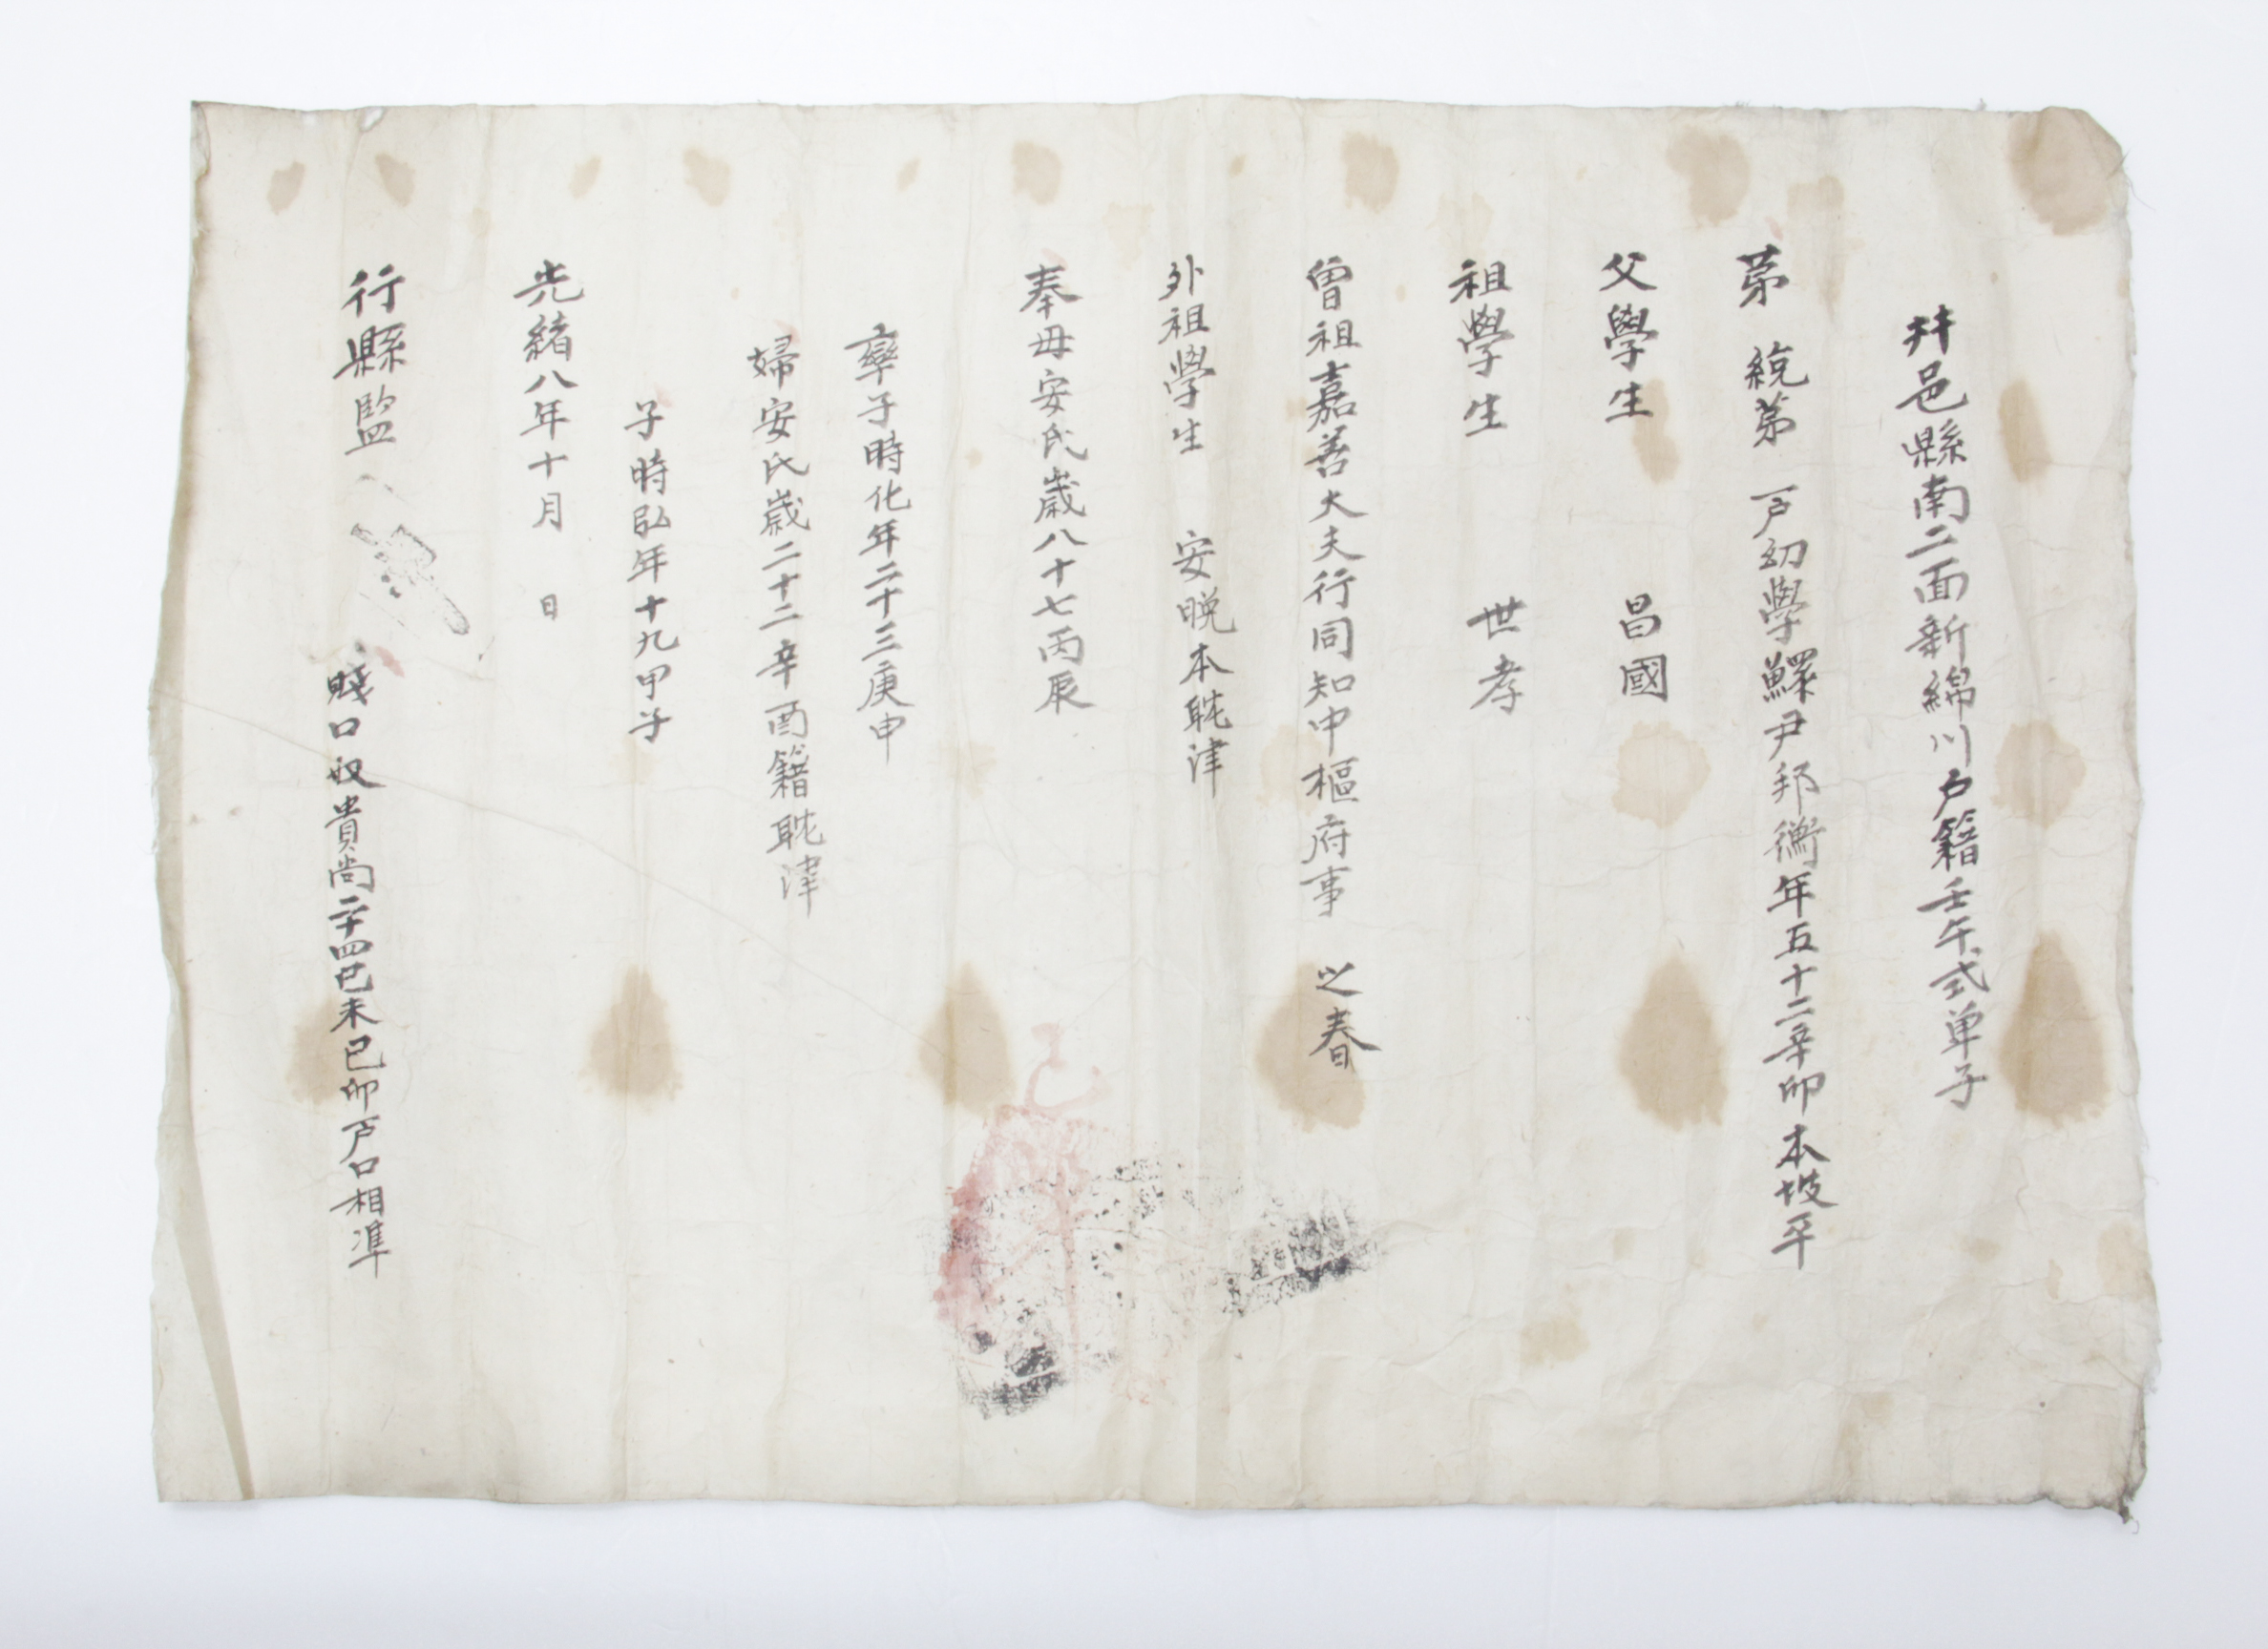 井邑縣南二面新綿川戶籍壬午式单子
苐 統苐 戶幼學鰥尹邦衡年五十二辛卯本坡平
父學生 昌國
祖學生 世孝
曾祖嘉善大夫行同知中樞府事 之春
外祖學生 安晩本耽津
奉母安氏歲八十七丙辰
率子時化年二十三庚申
婦安氏歲二十二辛酉籍耽津
子時弘年十九甲子
光緖八年十月 日
行縣監
賤口奴貴尚二十四己未己卯戶口相凖